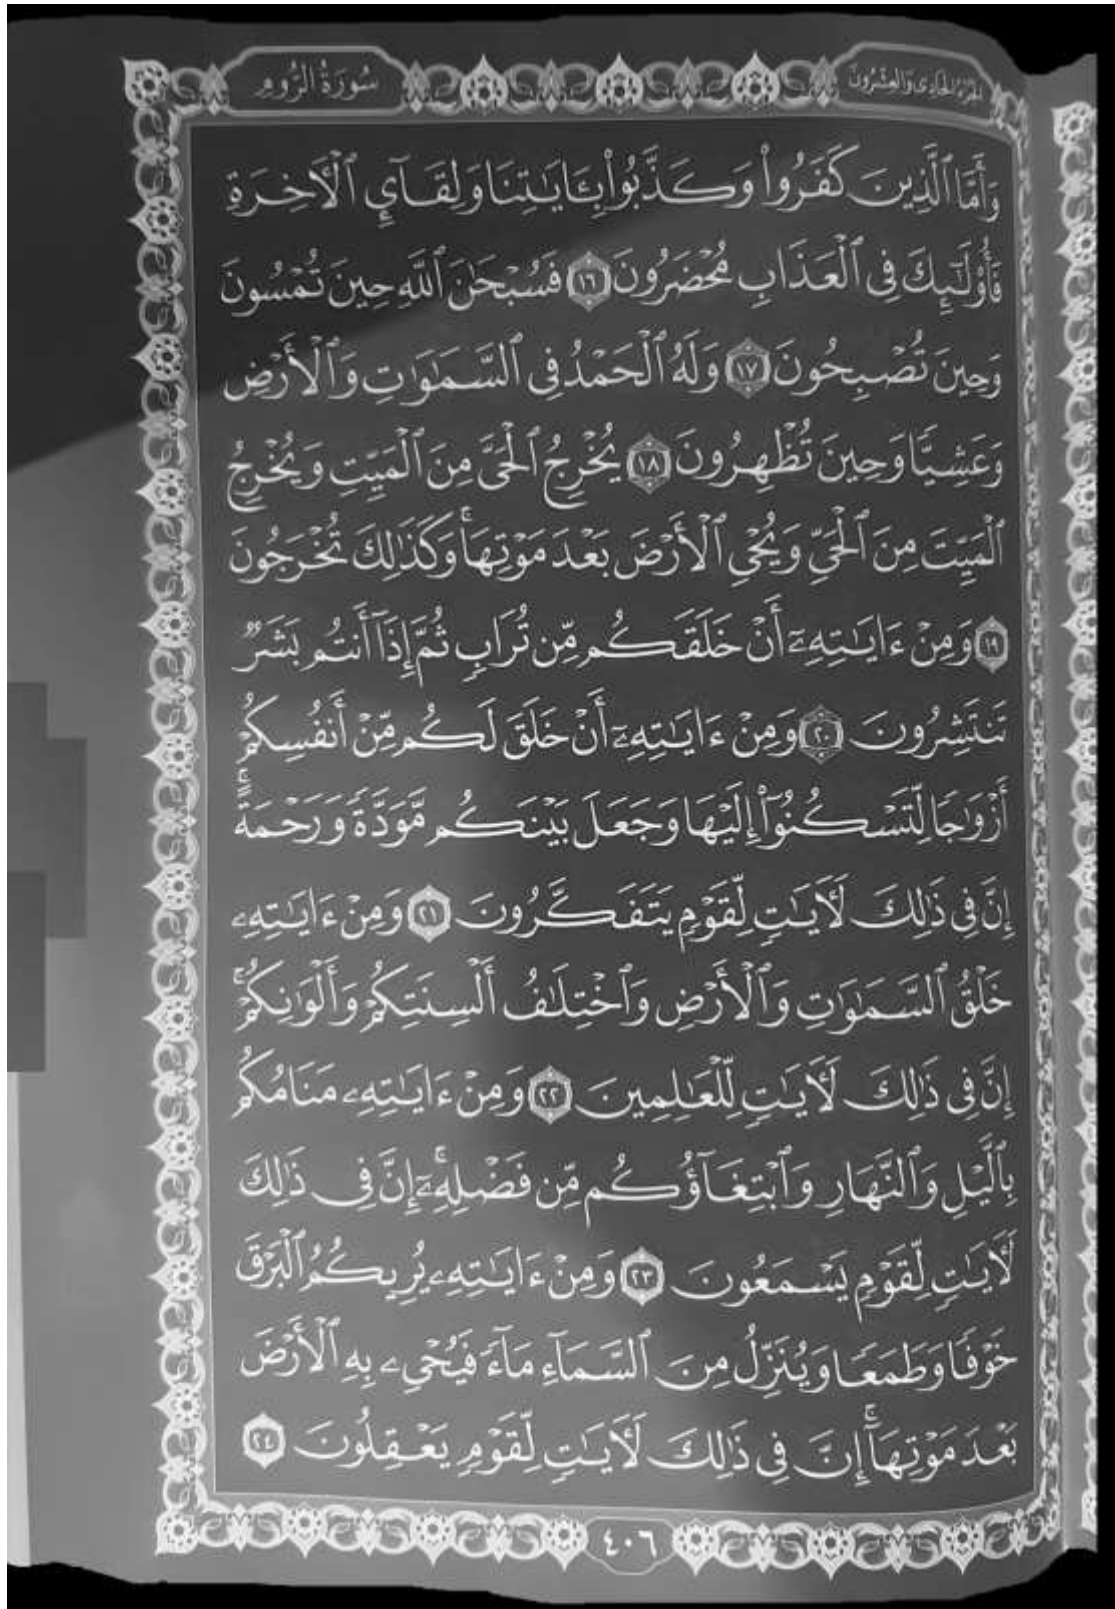 الجزء الحادي والعشرون
سُورَةُ الرُّومِ
وَأَمَّا ٱلَّذِينَ كَفَرُوا۟ وَكَذَّبُوا۟ بِـَٔايَـٰتِنَا وَلِقَآئِ ٱلْـَٔاخِرَةِ
فَأُو۟لَـٰٓئِكَ فِى ٱلْعَذَابِ مُحْضَرُونَ ١٦ فَسُبْحَـٰنَ ٱللَّهِ حِينَ تُمْسُونَ
وَحِينَ تُصْبِحُونَ ١٧ وَلَهُ ٱلْحَمْدُ فِى ٱلسَّمَـٰوَٰتِ وَٱلْأَرْضِ
وَعَشِيًّا وَحِينَ تُظْهِرُونَ ١٨ يُخْرِجُ ٱلْحَىَّ مِنَ ٱلْمَيِّتِ وَيُخْرِجُ
ٱلْمَيِّتَ مِنَ ٱلْحَىِّ وَيُحْىِ ٱلْأَرْضَ بَعْدَ مَوْتِهَا ۚ وَكَذَٰلِكَ تُخْرَجُونَ
١٩ وَمِنْ ءَايَـٰتِهِۦٓ أَنْ خَلَقَكُم مِّن تُرَابٍ ثُمَّ إِذَآ أَنتُم بَشَرٌ
تَنتَشِرُونَ ٢٠ وَمِنْ ءَايَـٰتِهِۦٓ أَنْ خَلَقَ لَكُم مِّنْ أَنفُسِكُمْ
أَزْوَٰجًا لِّتَسْكُنُوٓا۟ إِلَيْهَا وَجَعَلَ بَيْنَكُم مَّوَدَّةً وَرَحْمَةً ۚ
إِنَّ فِى ذَٰلِكَ لَـَٔايَـٰتٍ لِّقَوْمٍ يَتَفَكَّرُونَ ٢١ وَمِنْ ءَايَـٰتِهِۦ
خَلْقُ ٱلسَّمَـٰوَٰتِ وَٱلْأَرْضِ وَٱخْتِلَـٰفُ أَلْسِنَتِكُمْ وَأَلْوَٰنِكُمْ ۚ
إِنَّ فِى ذَٰلِكَ لَـَٔايَـٰتٍ لِّلْعَـٰلِمِينَ ٢٢ وَمِنْ ءَايَـٰتِهِۦ مَنَامُكُم
بِٱلَّيْلِ وَٱلنَّهَارِ وَٱبْتِغَآؤُكُم مِّن فَضْلِهِۦٓ ۚ إِنَّ فِى ذَٰلِكَ
لَـَٔايَـٰتٍ لِّقَوْمٍ يَسْمَعُونَ ٢٣ وَمِنْ ءَايَـٰتِهِۦ يُرِيكُمُ ٱلْبَرْقَ
خَوْفًا وَطَمَعًا وَيُنَزِّلُ مِنَ ٱلسَّمَآءِ مَآءً فَيُحْىِۦ بِهِ ٱلْأَرْضَ
بَعْدَ مَوْتِهَآ ۚ إِنَّ فِى ذَٰلِكَ لَـَٔايَـٰتٍ لِّقَوْمٍ يَعْقِلُونَ ٢٤
٤٠٦